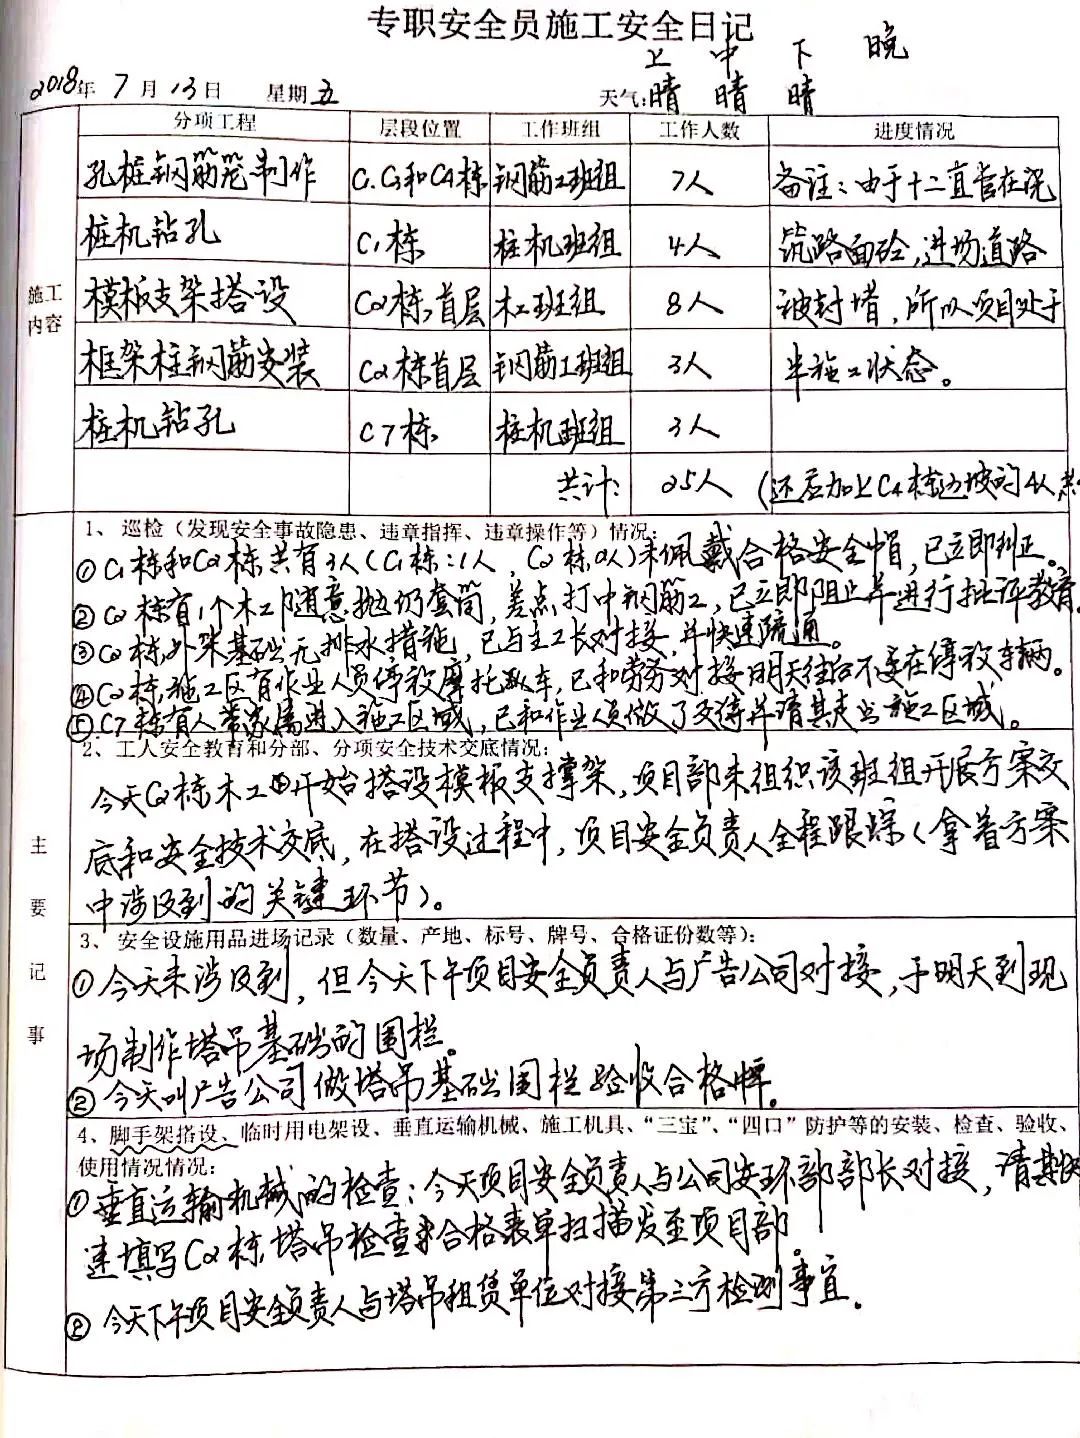 专职安全员施工安全日记
上 中 下 晚
2018年 7 月 13 日 星期 五 天气:晴 晴 晴
分项工程 层段位置 工作班组 工作人数 进度情况
孔桩钢筋笼制作 C1.C3和C4栋 钢筋工班组 7人 备注：由于十二直管在浇
桩机钻孔 C1栋 桩机班组 4人 筑路面砼,进场道路
施工内容
模板支架搭设 C2栋,首层 木工班组 8人 被封堵，所以项目处于
框架柱钢筋安装 C2栋首层 钢筋工班组 3人 半施工状态。
桩机钻孔 C7栋 桩机班组 3人
共计: 25人 (还应加上C4栋边坡的4人
主要记事
1、巡检（发现安全事故隐患、违章指挥、违章操作等）情况:
①C1栋和C2栋共有3人(C1栋:1人，C2栋2人)未佩戴合格安全帽,已立即纠正。
②C2栋有1个木工随意抛扔套筒,差点打中钢筋工,已立即阻止并进行批评教育
③C2栋,外架基础无排水措施,已与主工长对接,并快速疏通。
④C2栋,施工区有作业人员停放摩托车,已和劳务对接明天往后不要在停放车辆。
⑤C7栋有人带家属进入施工区域,已和作业人员做了交待并请其走出施工区域。
2、工人安全教育和分部、分项安全技术交底情况:
今天C2栋木工开始搭设模板支撑架,项目部未组织该班组开展方案交
底和安全技术交底,在搭设过程中,项目安全负责人全程跟踪(拿着方案
中涉及到的关键环节)。
3、安全设施用品进场记录（数量、产地、标号、牌号、合格证份数等）:
①今天未涉及到,但今天下午项目安全负责人与广告公司对接,于明天到现
场制作塔吊基础的围栏。
②今天叫广告公司做塔吊基础围栏验收合格牌。
4、脚手架搭设、临时用电架设、垂直运输机械、施工机具、“三宝”、“四口”防护等的安装、检查、验收、
使用情况情况:
①垂直运输机械的检查:今天项目安全负责人与公司安环部部长对接,请其快
速填写C2栋,塔吊检查合格表单扫描发至项目部。
②今天下午项目安全负责人与塔吊租赁单位对接第三方检测事宜.